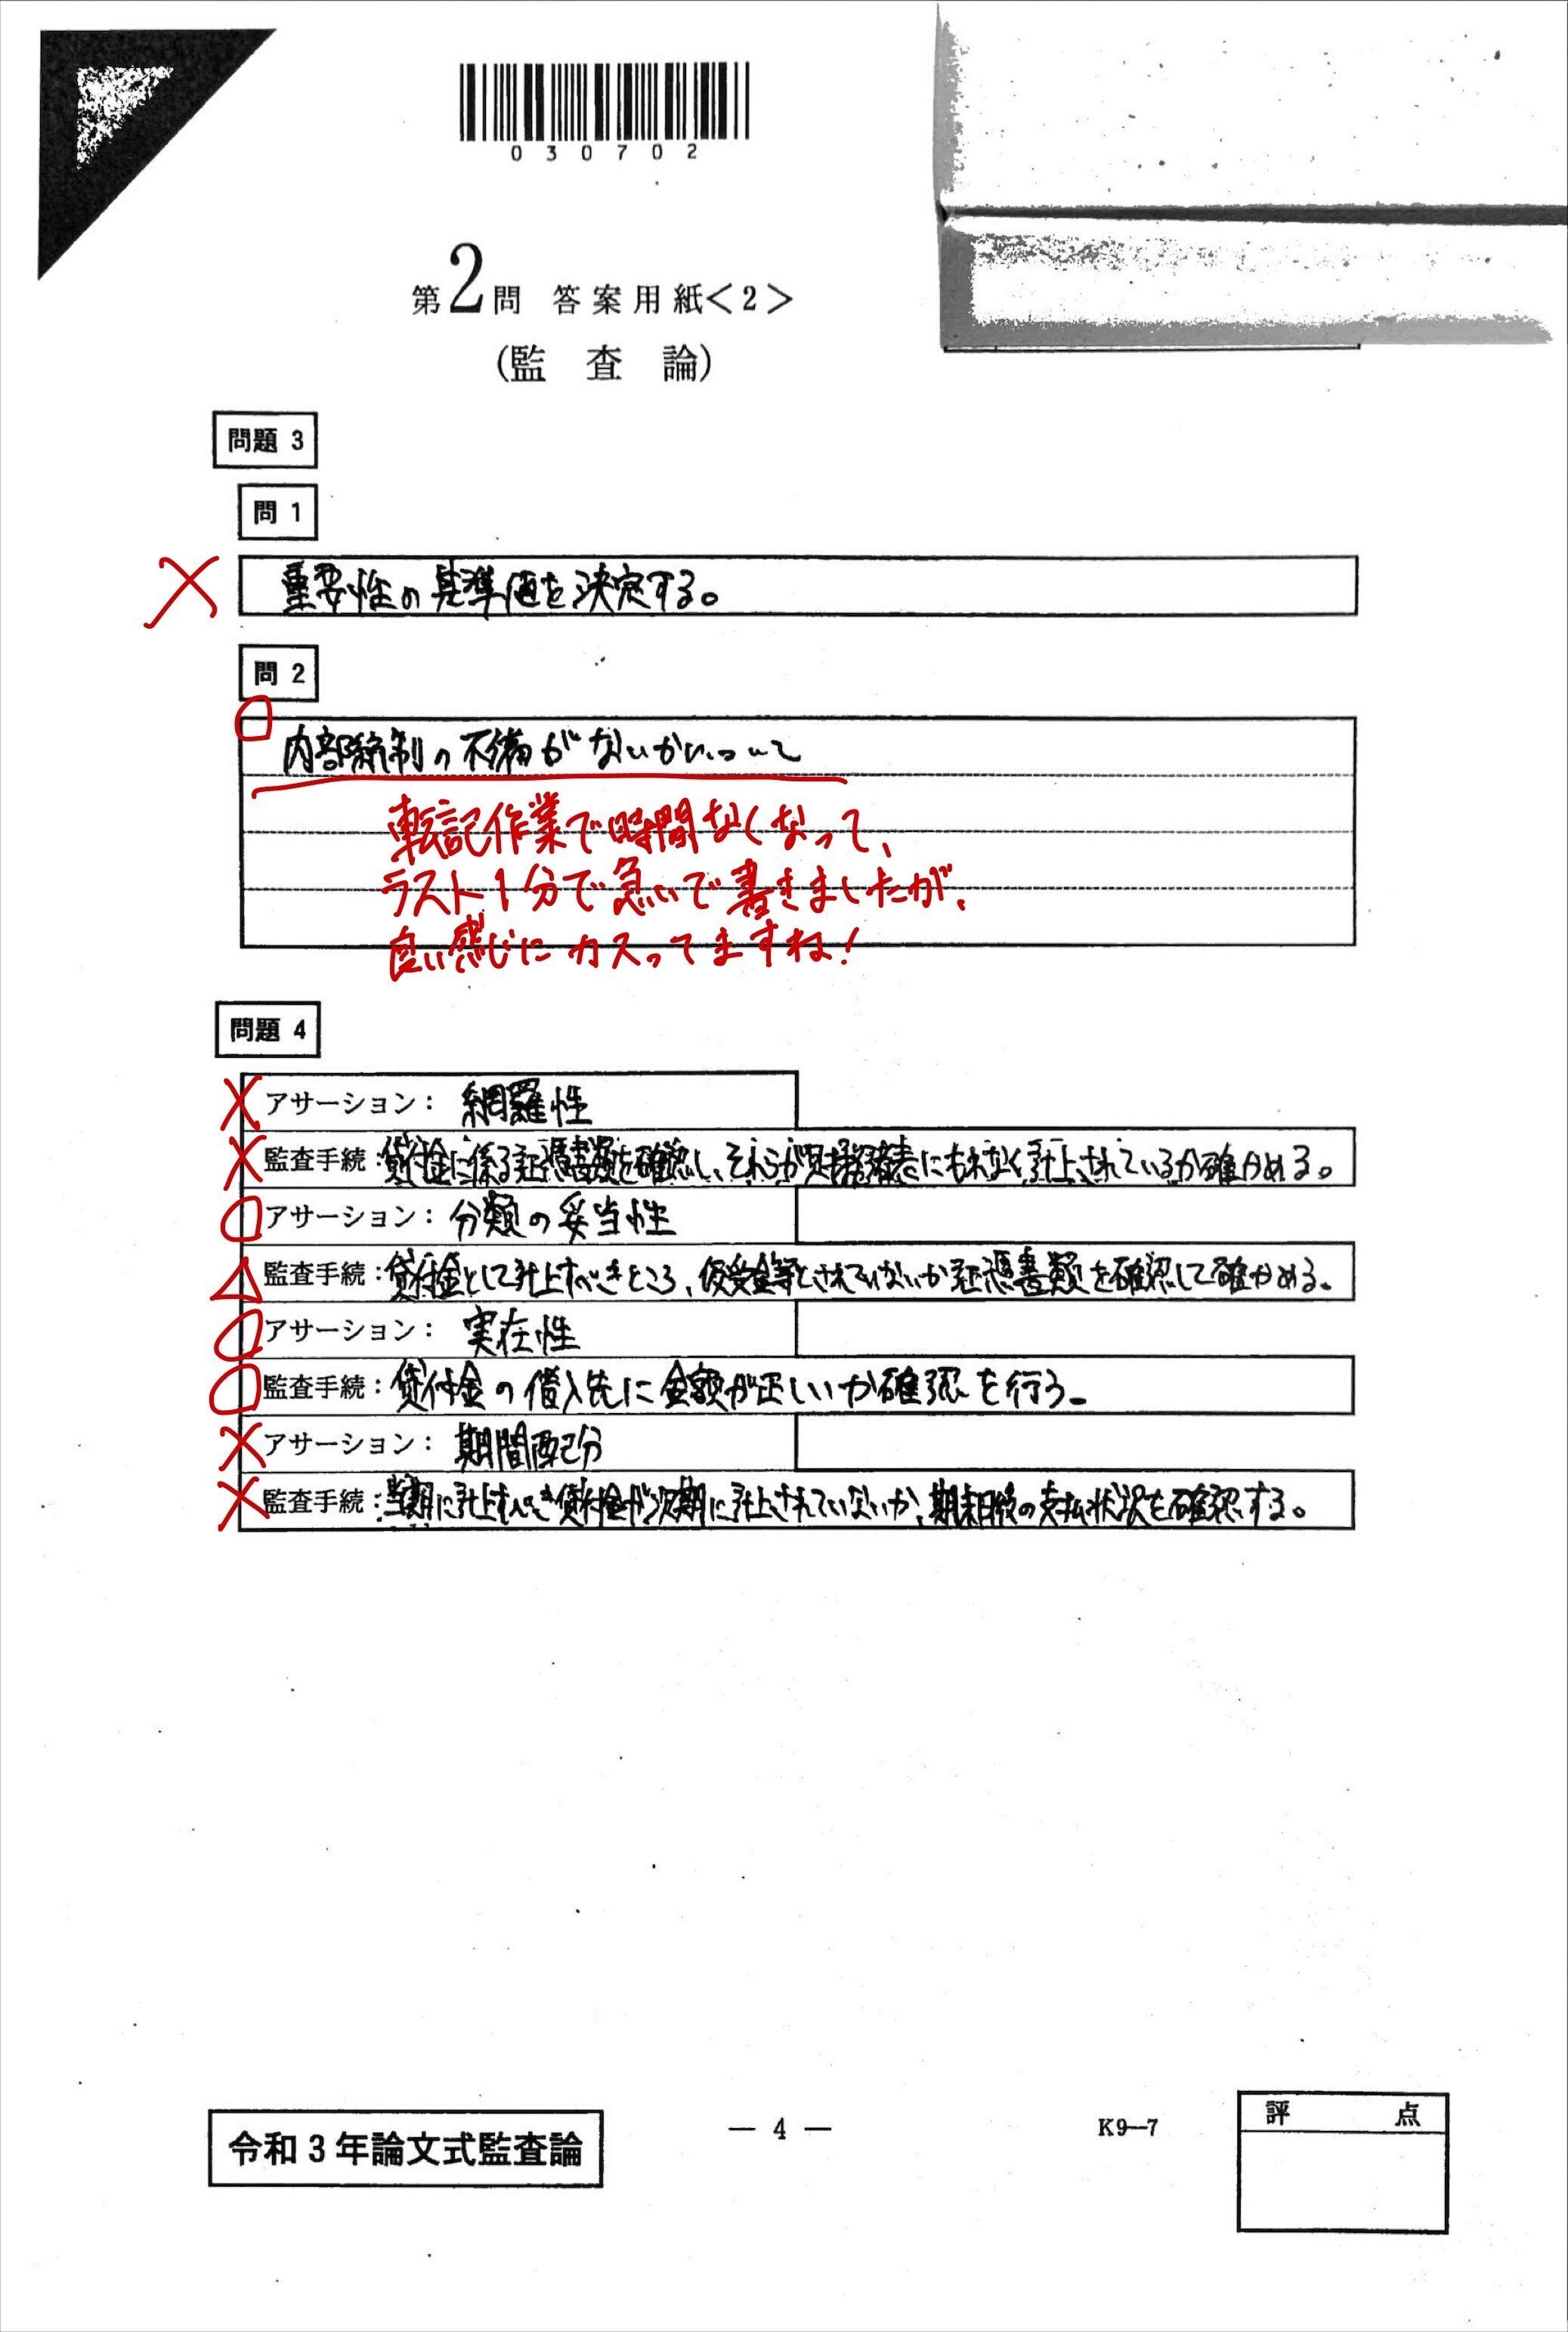 030702
第2問 答案用紙<2>
(監査論)
問題 3
問 1
重要性の基準値を決定する。
問 2
内部統制の不備がないかについて
転記作業で時間なくなって、
ラスト1分で急いで書きましたが、
良い感じにカスってますね!
問題 4
アサーション: 網羅性
監査手続:貸付金に係る証憑書類を確認し、それらが財務諸表にもれなく計上されているか確かめる。
アサーション: 分類の妥当性
監査手続:貸付金として計上すべきところ、仮受金等とされていないか証憑書類を確認して確かめる。
アサーション: 実在性
監査手続:貸付金の借入先に金額が正しいか確認を行う。
アサーション: 期間配分
監査手続:当期に計上すべき貸付金が次期に計上されていないか、期末日後の支払状況を確認する。
令和3年論文式監査論
― 4 ―
K9―7
評 点